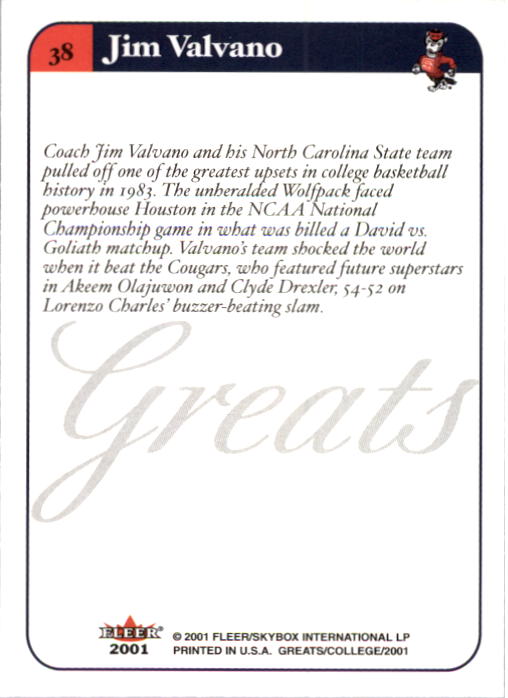 38 Jim Valvano
Coach Jim Valvano and his North Carolina State team
pulled off one of the greatest upsets in college basketball
history in 1983. The unheralded Wolfpack faced
powerhouse Houston in the NCAA National
Championship game in what was billed a David vs.
Goliath matchup. Valvano's team shocked the world
when it beat the Cougars, who featured future superstars
in Akeem Olajuwon and Clyde Drexler, 54-52 on
Lorenzo Charles' buzzer-beating slam.
Greats
FLEER®
2001
© 2001 FLEER/SKYBOX INTERNATIONAL LP
PRINTED IN U.S.A. GREATS/COLLEGE/2001